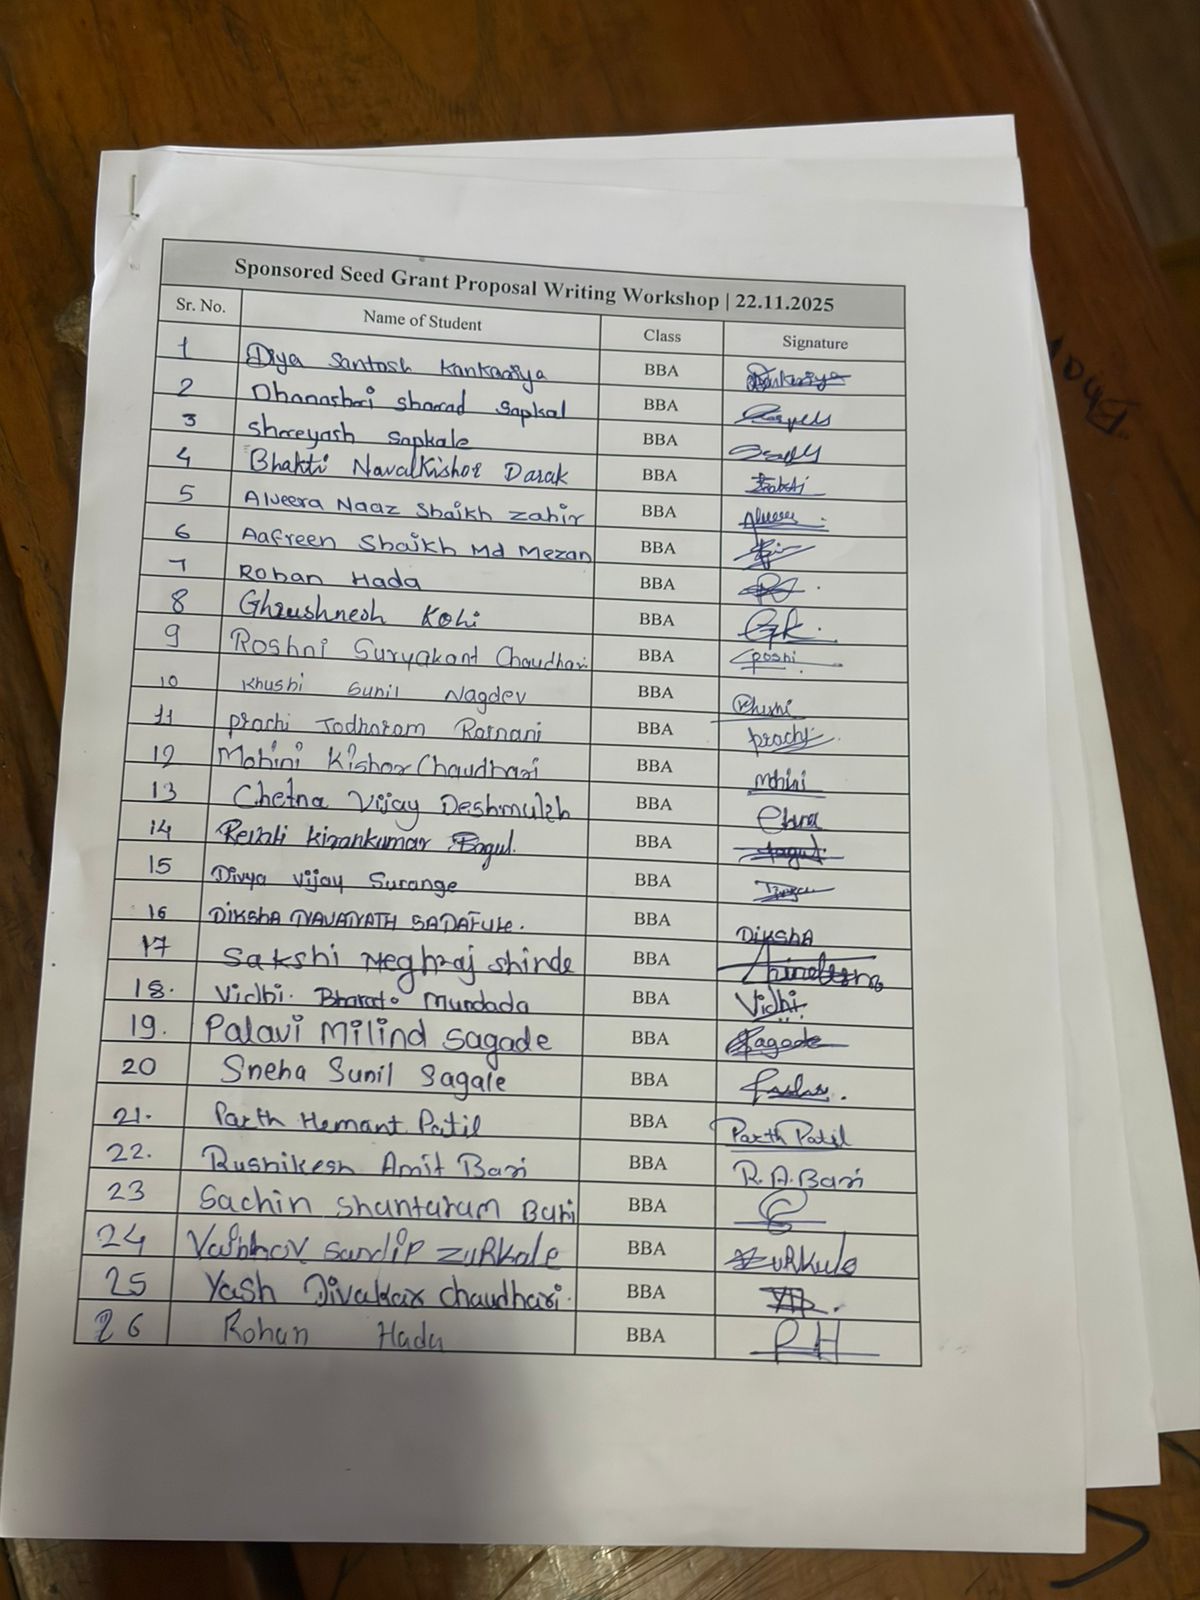 Sponsored Seed Grant Proposal Writing Workshop | 22.11.2025
Sr. No. Name of Student Class Signature
1 Diya Santosh Kankariya BBA Kankariya
2 Dhanashri Sharad Sapkal BBA
3 Shreyash Sapkale BBA
4 Bhakti NavalKishor Darak BBA Bhakti
5 Alveera Naaz Shaikh Zahir BBA Alveera
6 Aafreen Shaikh Md Mezan BBA
7 Rohan Hada BBA
8 Ghrushnesh Kohi BBA GK.
9 Roshni Suryakant Chaudhari BBA
10 Khushi Sunil Nagdev BBA Khushi
11 Prachi Jodharam Ratnani BBA prachi
12 Mohini Kishor Chaudhari BBA mohini
13 Chetna Vijay Deshmukh BBA
14 Kirankumar Bagul. BBA
15 Divya Vijay Surange BBA
16 DIKSHA NAVANATH SADAFULE. BBA DIKSHA
17 Sakshi Meghraj Shinde BBA
18. Vidhi. Bharat Mundada BBA Vidhi.
19. Palavi Milind Sagade BBA Sagade
20 Sneha Sunil Sagale BBA
21. Parth Hemant Patil BBA Parth Patil
22. Rushikesh Amit Bari BBA R.A.Bari
23 Sachin Shantaram Bari BBA
24 Vaibhav Sandip ZURKale BBA ZURKule
25 Yash Divakar Chaudhari. BBA
26 Rohan Hadu BBA RH